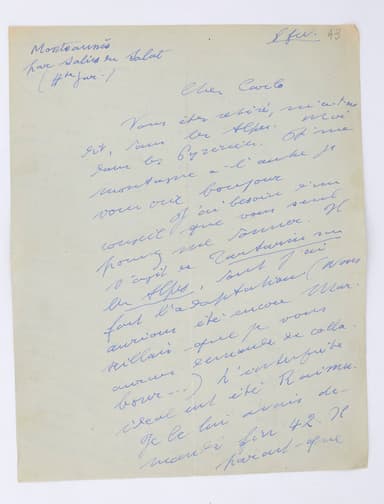 Montsaunès
par Salies du Salat
(Hte Gar.)
8 fév. 43
Cher Carlo
Vous êtes retiré, m'a-t-on
dit, dans les Alpes. Moi
dans les Pyrénées. D'une
montagne à l'autre je
vous crie bonjour
J'ai besoin d'un
conseil que vous seul
pouvez me donner. Il
s'agit de Tartarin sur
les Alpes, dont j'ai
fait l'adaptation (nous
aurions été encore Mar-
seillais que je vous
aurais demandé de colla-
borer...) L'interprète
idéal eut été Raimu.
Je le lui avais de-
mandé fin 42. Il
paraît que